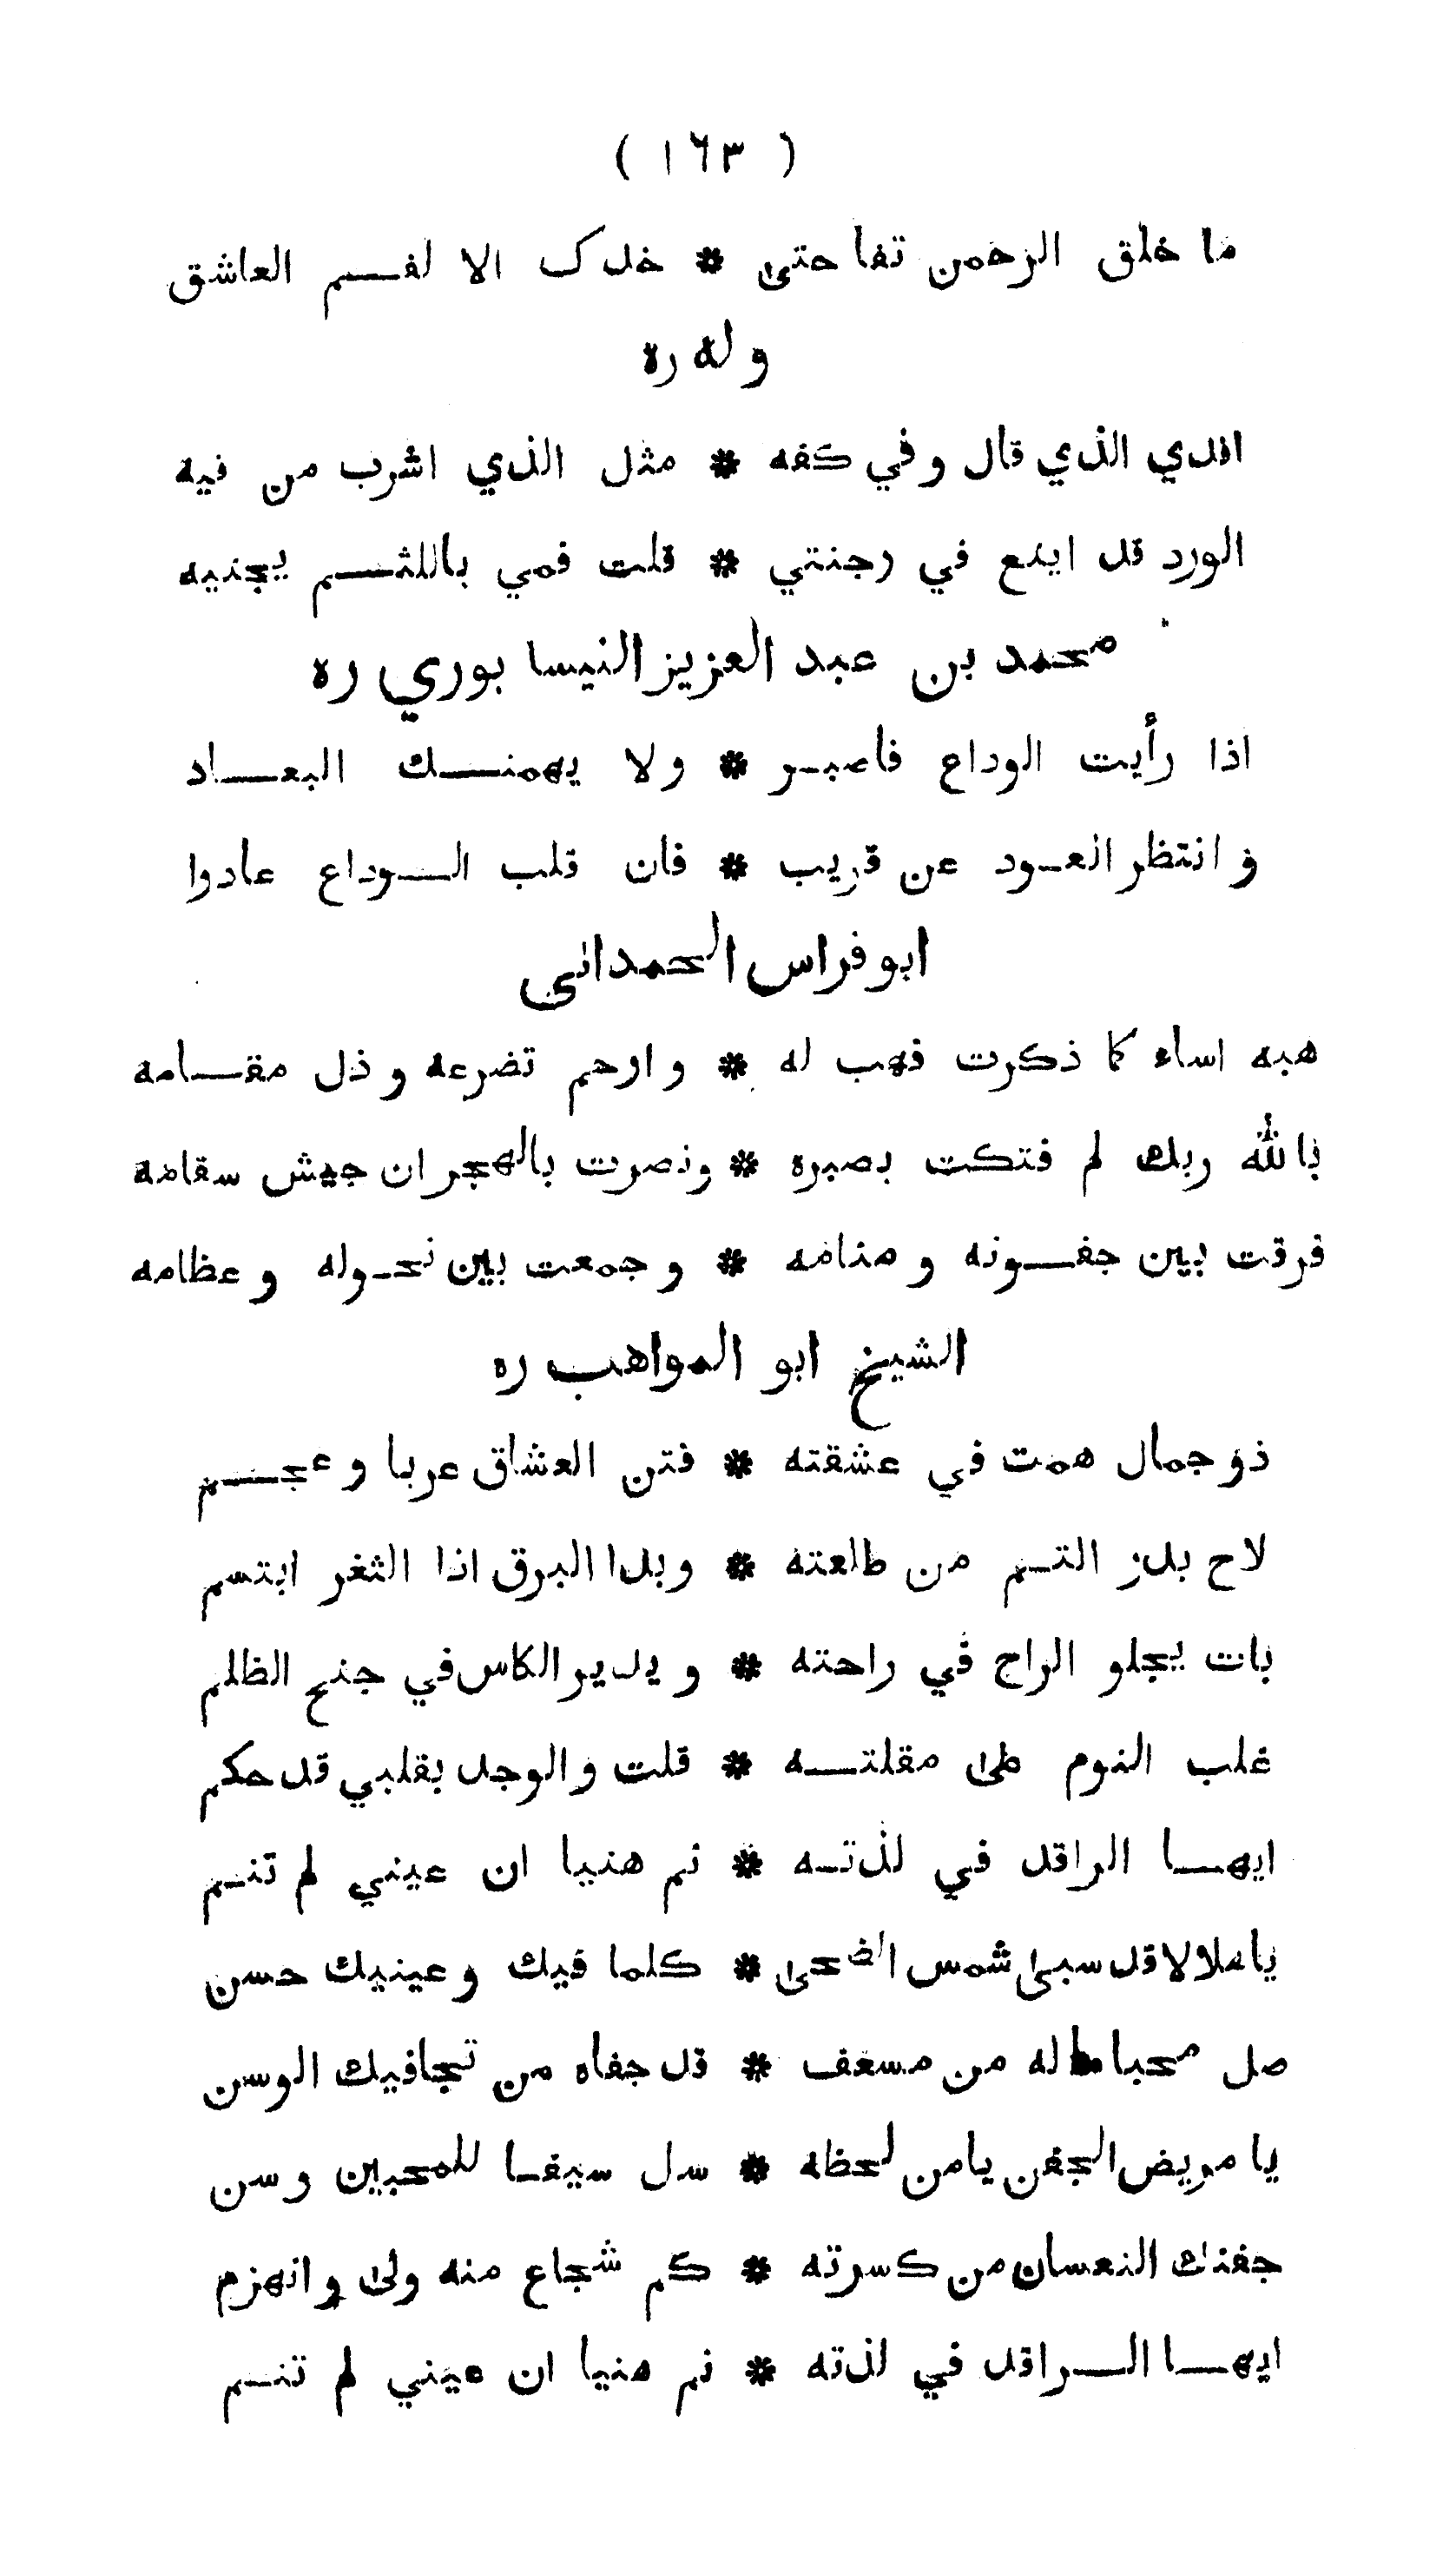 ( ١٦٣ )
ما خلق الرحمن تفاحتى * خدك الا لفم العاشق
وله ره
افدي الذي قال وفي كفه * مثل الذي اشرب من فيه
الورد قد اينع في وجنتي * قلت فمي باللثم يجنيه
محمد بن عبد العزيز النيسابوري ره
اذا رأيت الوداع فاصبر * ولا يهمنك البعاد
وانتظر العود عن قريب * فان قلب الوداع عادوا
ابوفراس الحمداني
هبه اساء كما ذكرت فهب له * وارحم تضرعه وذل مقامه
بالله ربك لم فتكت بصبره * ونصرت بالهجران جيش سقامه
فرقت بين جفونه ومنامه * وجمعت بين نحوله وعظامه
الشيخ ابو المواهب ره
ذو جمال همت في عشقته * فتن العشاق عربا وعجم
لاح بدر التم من طلعته * وبدا البرق اذا الثغر ابتسم
بات يجلو الراح في راحته * ويدير الكاس في جنح الظلم
غلب النوم على مقلته * قلت والوجد بقلبي قد حكم
ايها الراقد في لذته * نم هنيا ان عيني لم تنم
يا هلالا قد سبى شمس الضحى * كلما فيك وعينيك حسن
صل محبا ما له من مسعف * قد جفاه من تجافيك الوسن
يا مريض الجفن يا من لحظه * سل سيفا للمحبين وسن
جفنك النعسان من كسرته * كم شجاع منه ولى وانهزم
ايها الراقد في لذته * نم هنيا ان عيني لم تنم